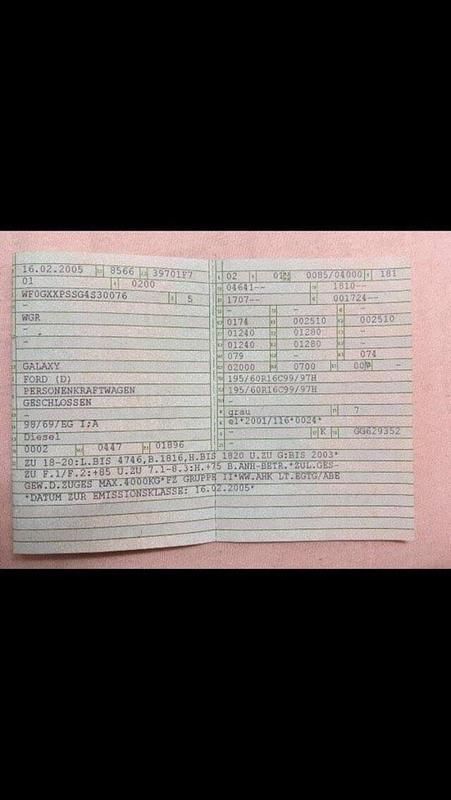 16.02.2005 8566 39701F7
01 0200
WF0GXXPSSG4S30076 5
-
WGR
-
-
GALAXY
FORD (D)
PERSONENKRAFTWAGEN
GESCHLOSSEN
-
98/69/EG I;A
Diesel
0002 0447 01896
02 01 0085/04000 181
04641-- 1810--
1707-- 001724--
- - -
0174 002510 002510
01240 01280 -
01240 01280 -
079 - 074
02000 0700 00 -
195/60R16C99/97H
195/60R16C99/97H
-
grau 7
e1*2001/116*0024*
- K GG629352
-
ZU 18-20:L.BIS 4746,B.1816,H.BIS 1820 U.ZU G:BIS 2003*
ZU F.1/F.2:+85 U.ZU 7.1-8.3:H.+75 B.ANH-BETR.*ZUL.GES-
GEW.D.ZUGES MAX.4000KG*FZ GRUPPE II*WW.AHK LT.EGTG/ABE
*DATUM ZUR EMISSIONSKLASSE: 16.02.2005*